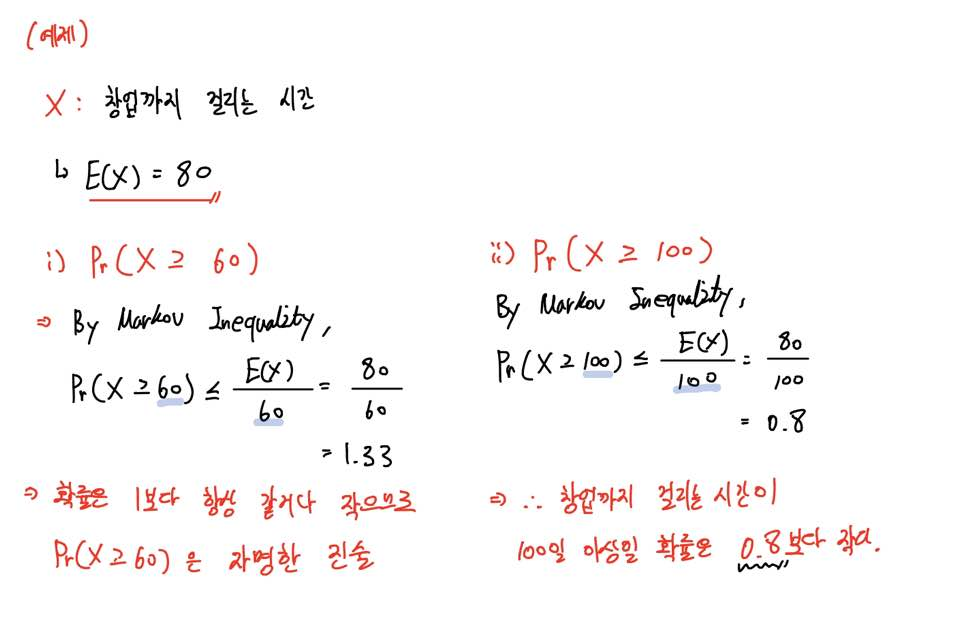 (예제)
X : 창업까지 걸리는 시간
↳ E(X) = 80
i) Pr(X ≥ 60)
⇒ By Markov Inequality,
Pr(X ≥ 60) ≤ E(X)/60 = 80/60
= 1.33
⇒ 확률은 1보다 항상 같거나 작으므로
Pr(X ≥ 60) 은 자명한 진술
ii) Pr(X ≥ 100)
By Markov Inequality,
Pr(X ≥ 100) ≤ E(X)/100 = 80/100
= 0.8
⇒ ∴ 창업까지 걸리는 시간이
100일 이상일 확률은 0.8보다 작다.